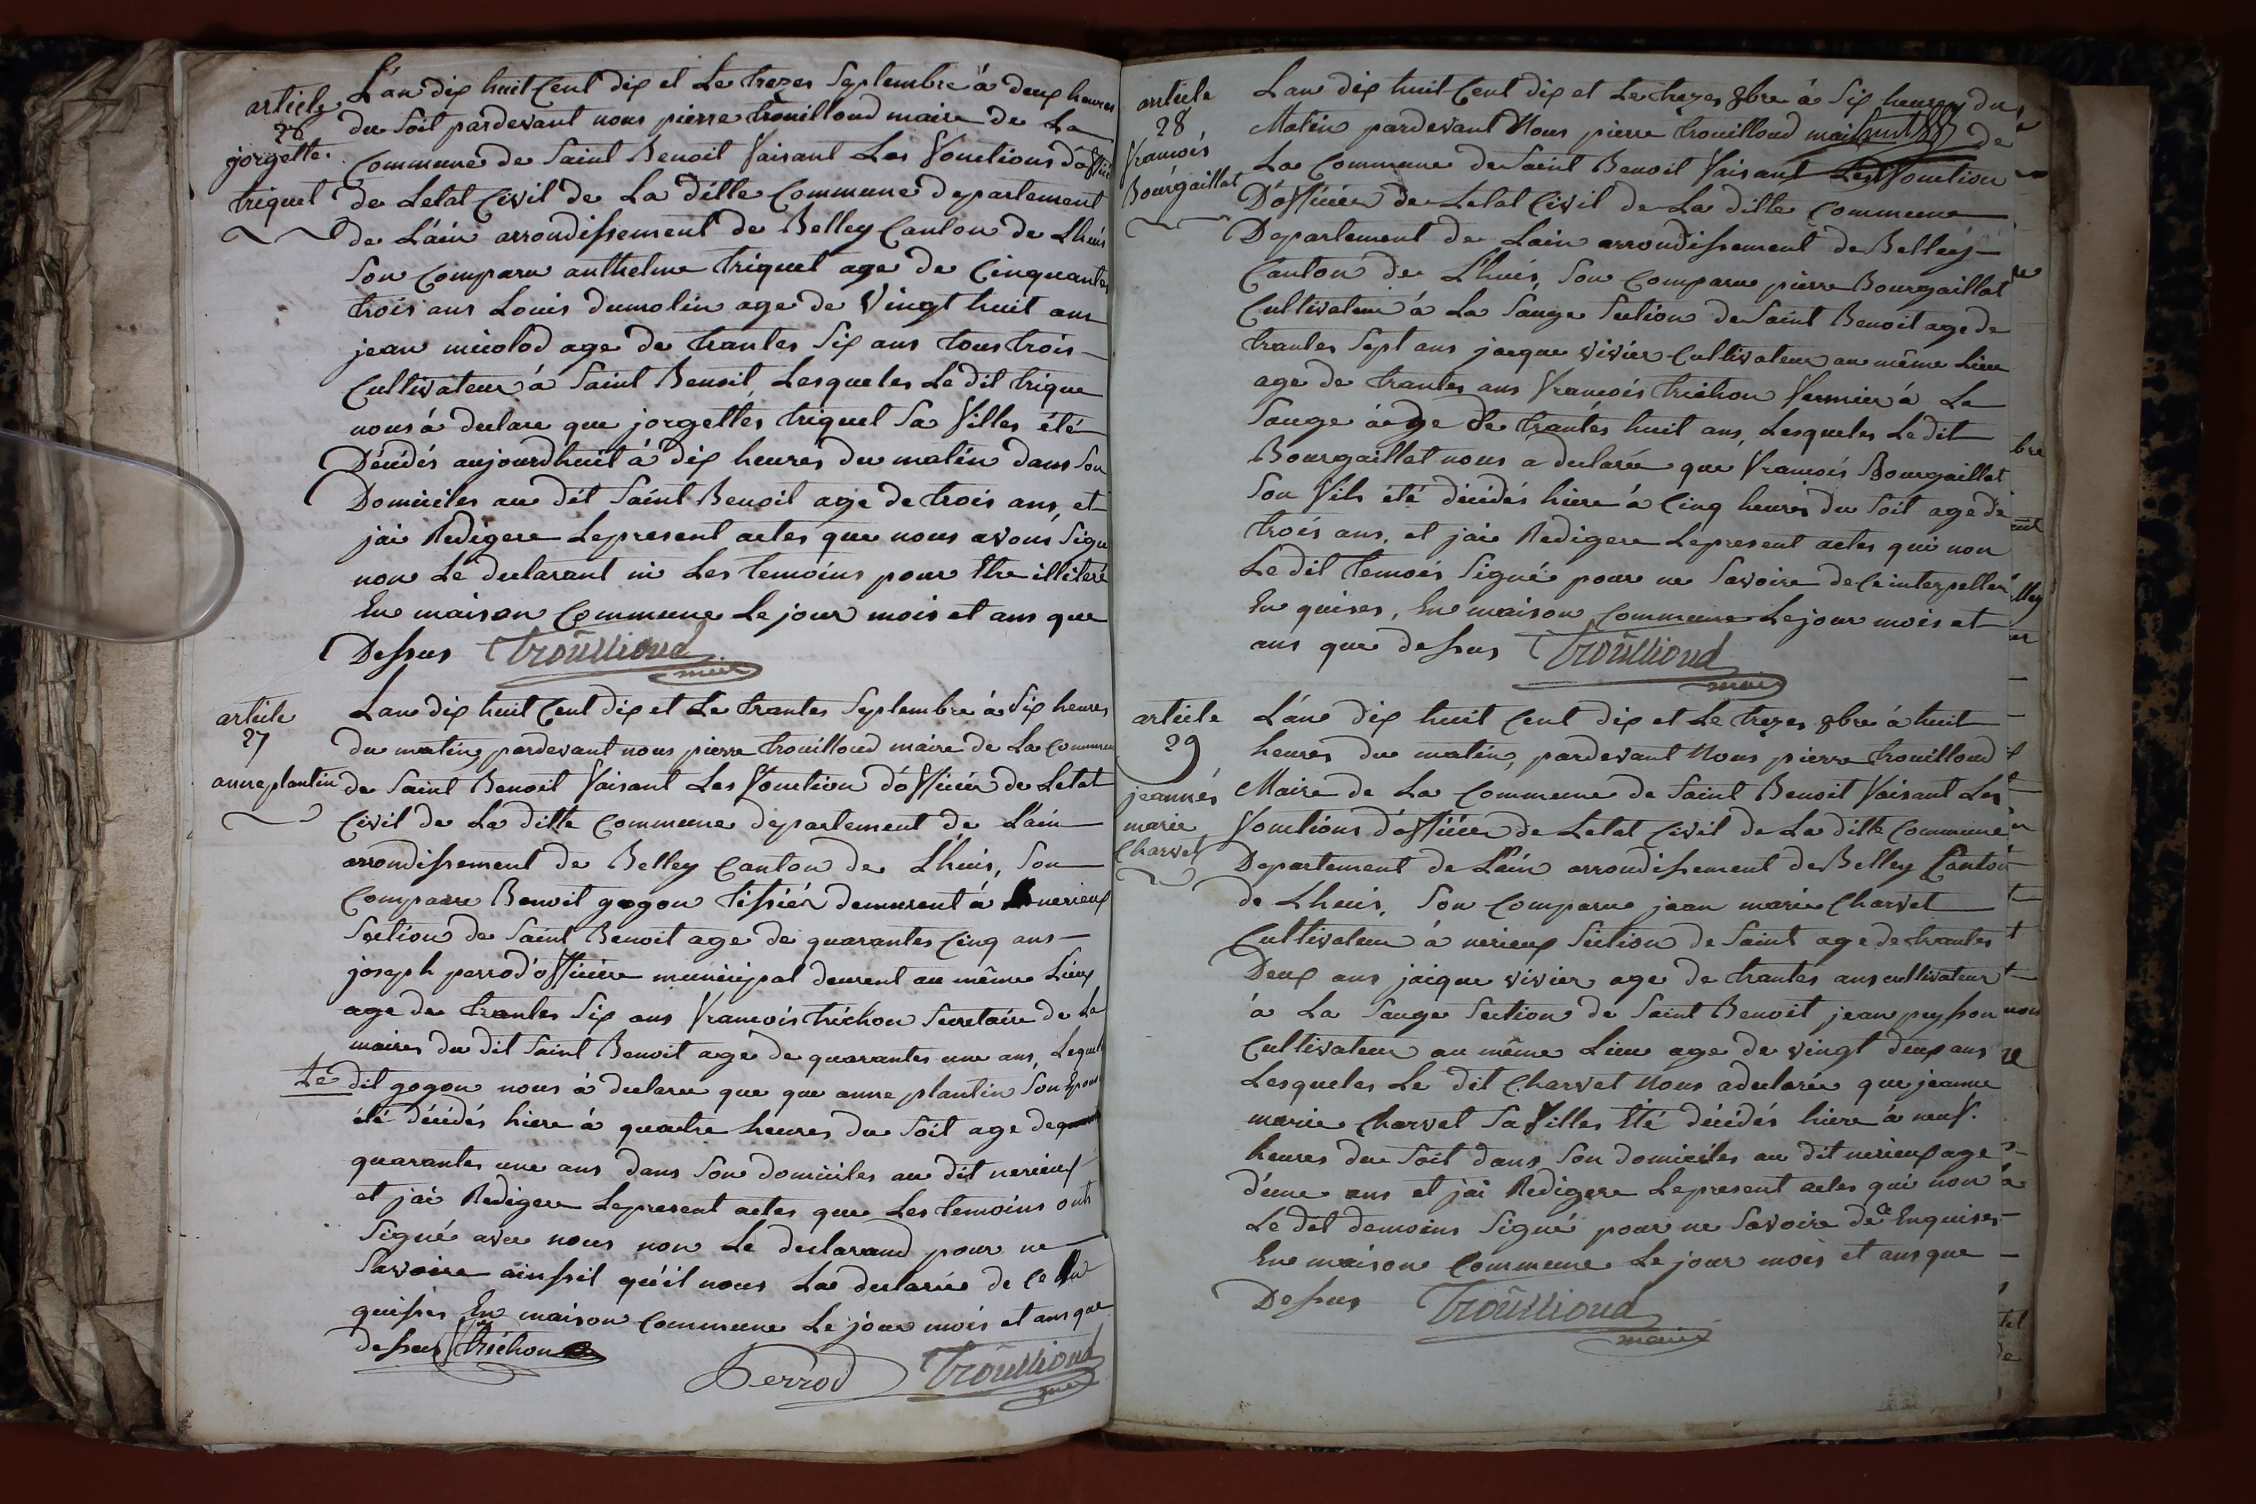 article
26
jorgettes
triquet
L'an dix huit Cent dix et Le trezes Septembre à deux heures
du Soit pardevant nous pierre trouilloud maire de La
Commune de Saint Benoit faisant Les fonctions d'officier
de Letat Civil de La ditte Commune departement
de L'ain arrondissement de Belley Canton de Lhuis
Son Comparu anthelme triquet age de Cinquantes
trois ans Louis dumolin age de Vingt huit ans
jean micolod age de trantes Six ans tous trois
Cultivateur à Saint Benoit Lesqueles Le dit trique
nous à declare que jorgettes triquet Sa filles été
Décédés aujourdhuit à dix heures du matin dans Son
Domiciles au dit Saint Benoit age de trois ans, et
jai Redigere Lepresent actes que nous avons Signe
non Le declarant ni Les temoins pour Etre illitere
En maison Commune Le jour mois et ans que
Dessus Trouilloud
maire
article
27
anne plantin
Lan dix huit Cent dix et Le trantes Septembre à Six heures
du matin, pardevant nous pierre trouilloud maire de La Commune
de Saint Benoit faisant Les fonction d'officier de Letat
Civil de La ditte Commune departement de L'ain
arrondissement de Belley Canton de Lhuis, Son
Comparu Benoit gogon tissier demurent à nerieux
Section de Saint Benoit age de quarantes Cinq ans
joseph perrod officiere municipal demrent au même Lieux
age de trantes Six ans francois trichon Secretaire de La
maires du dit Saint Benoit age de quarantes une ans, Lequels
Le dit gogon nous à declare que que anne plantin Son Epouse
été décédés hiere à quatre heures du Soit age de
quarantes une ans dans Son domiciles au dit nerieux
et jai Redigere Lepresent actes que Les temoins onts
Signé avec nous non Le declarand pour ne
Savoire ainssit qu'il nous La declarée de Ce En
quisses En maison Commune Le jour mois et ans que
dessus trichon
Perrod Trouilloud
maire
article
28
francois
Bourgaillat
Lan dix huit Cent dix et Le trezes 8bre à Six heures du
Matin pardevant Nous pierre trouilloud maire de
La Commune de Saint Benoit faisant Les fonction
D'officier de Letat Civil de La ditte Commune
Departement de Lain arrondissement de Belley
Canton de Lhuis, Son Comparu pierre Bourgaillat
Cultivateur à La Sauge Section de Saint Benoit age de
trantes Sept ans jacque vivier Cultivateur au même Lieu
age de trantes ans francois trichon fermier à La
Sauge àge de trantes huit ans, Lesqueles Le dit
Bourgaillat nous a declarée que francois Bourgaillat
Son fils été décédés hiere à Cinq heures du Soit age de
trois ans, et jai Redigere Lepresent actes qui non
Le dit temoin Signé pour ne Savoire de Ce interpeller
En quises, En maison Commune Le jour mois et
ans que dessus Trouilloud
maire
article
29
jeannes
marie
Charvet
L'an dix huit Cent dix et Le trezes 8bre à huit
heures du matin, pardevant Nous pierre trouilloud
Maire de La Commune de Saint Benoit faisant Les
fonctions d'officier de Letat Civil de La ditte Commune
Departement de L'ain arrondissement de Belley Canton
de Lhuis, Son Comparu jean marie Charvet
Cultivateur à nerieux Section de Saint age de trantes
Deux ans jacque vivier age de trantes ans cultivateur
à La Sauge Section de Saint Benoit jean peysson
Cultivateur au même Lieu age de vingt deux ans
Lesqueles Le dit Charvet Nous adeclarée que jeanne
marie Charvet Sa filles Eté décédés hiere à neuf
heures du Soit dans Son domiciles au dit nerieux age
d'une ans et jai Redigere Lepresent actes qui non
Le dit demoins Signé pour ne Savoire de Ce Enquises
En maison Commune Le jour mois et ans que
Dessus Trouilloud
maire